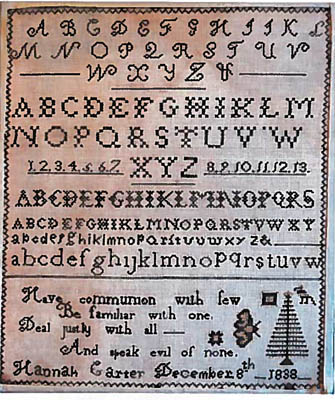 A B C D E F G H I I K L
M N O P Q R S T U V
W X Y Z &
ABCDEFGHIKLM
NOPQRSTUVW
1.2.3.4.5.6.7 XYZ 8.9.10.11.12.13.
ABCDEFGHIKLMNOPQRS
ABCDEFGHIKLMNOPQRSTVWXY
abcdefghiklmnopqrstuvwxyz&
abcdefghijklmnopqrstuvw
Have communion with few
Be familiar with one.
Deal justly with all —
And speak evil of none.
Hannah Carter December 8th — 1838 —